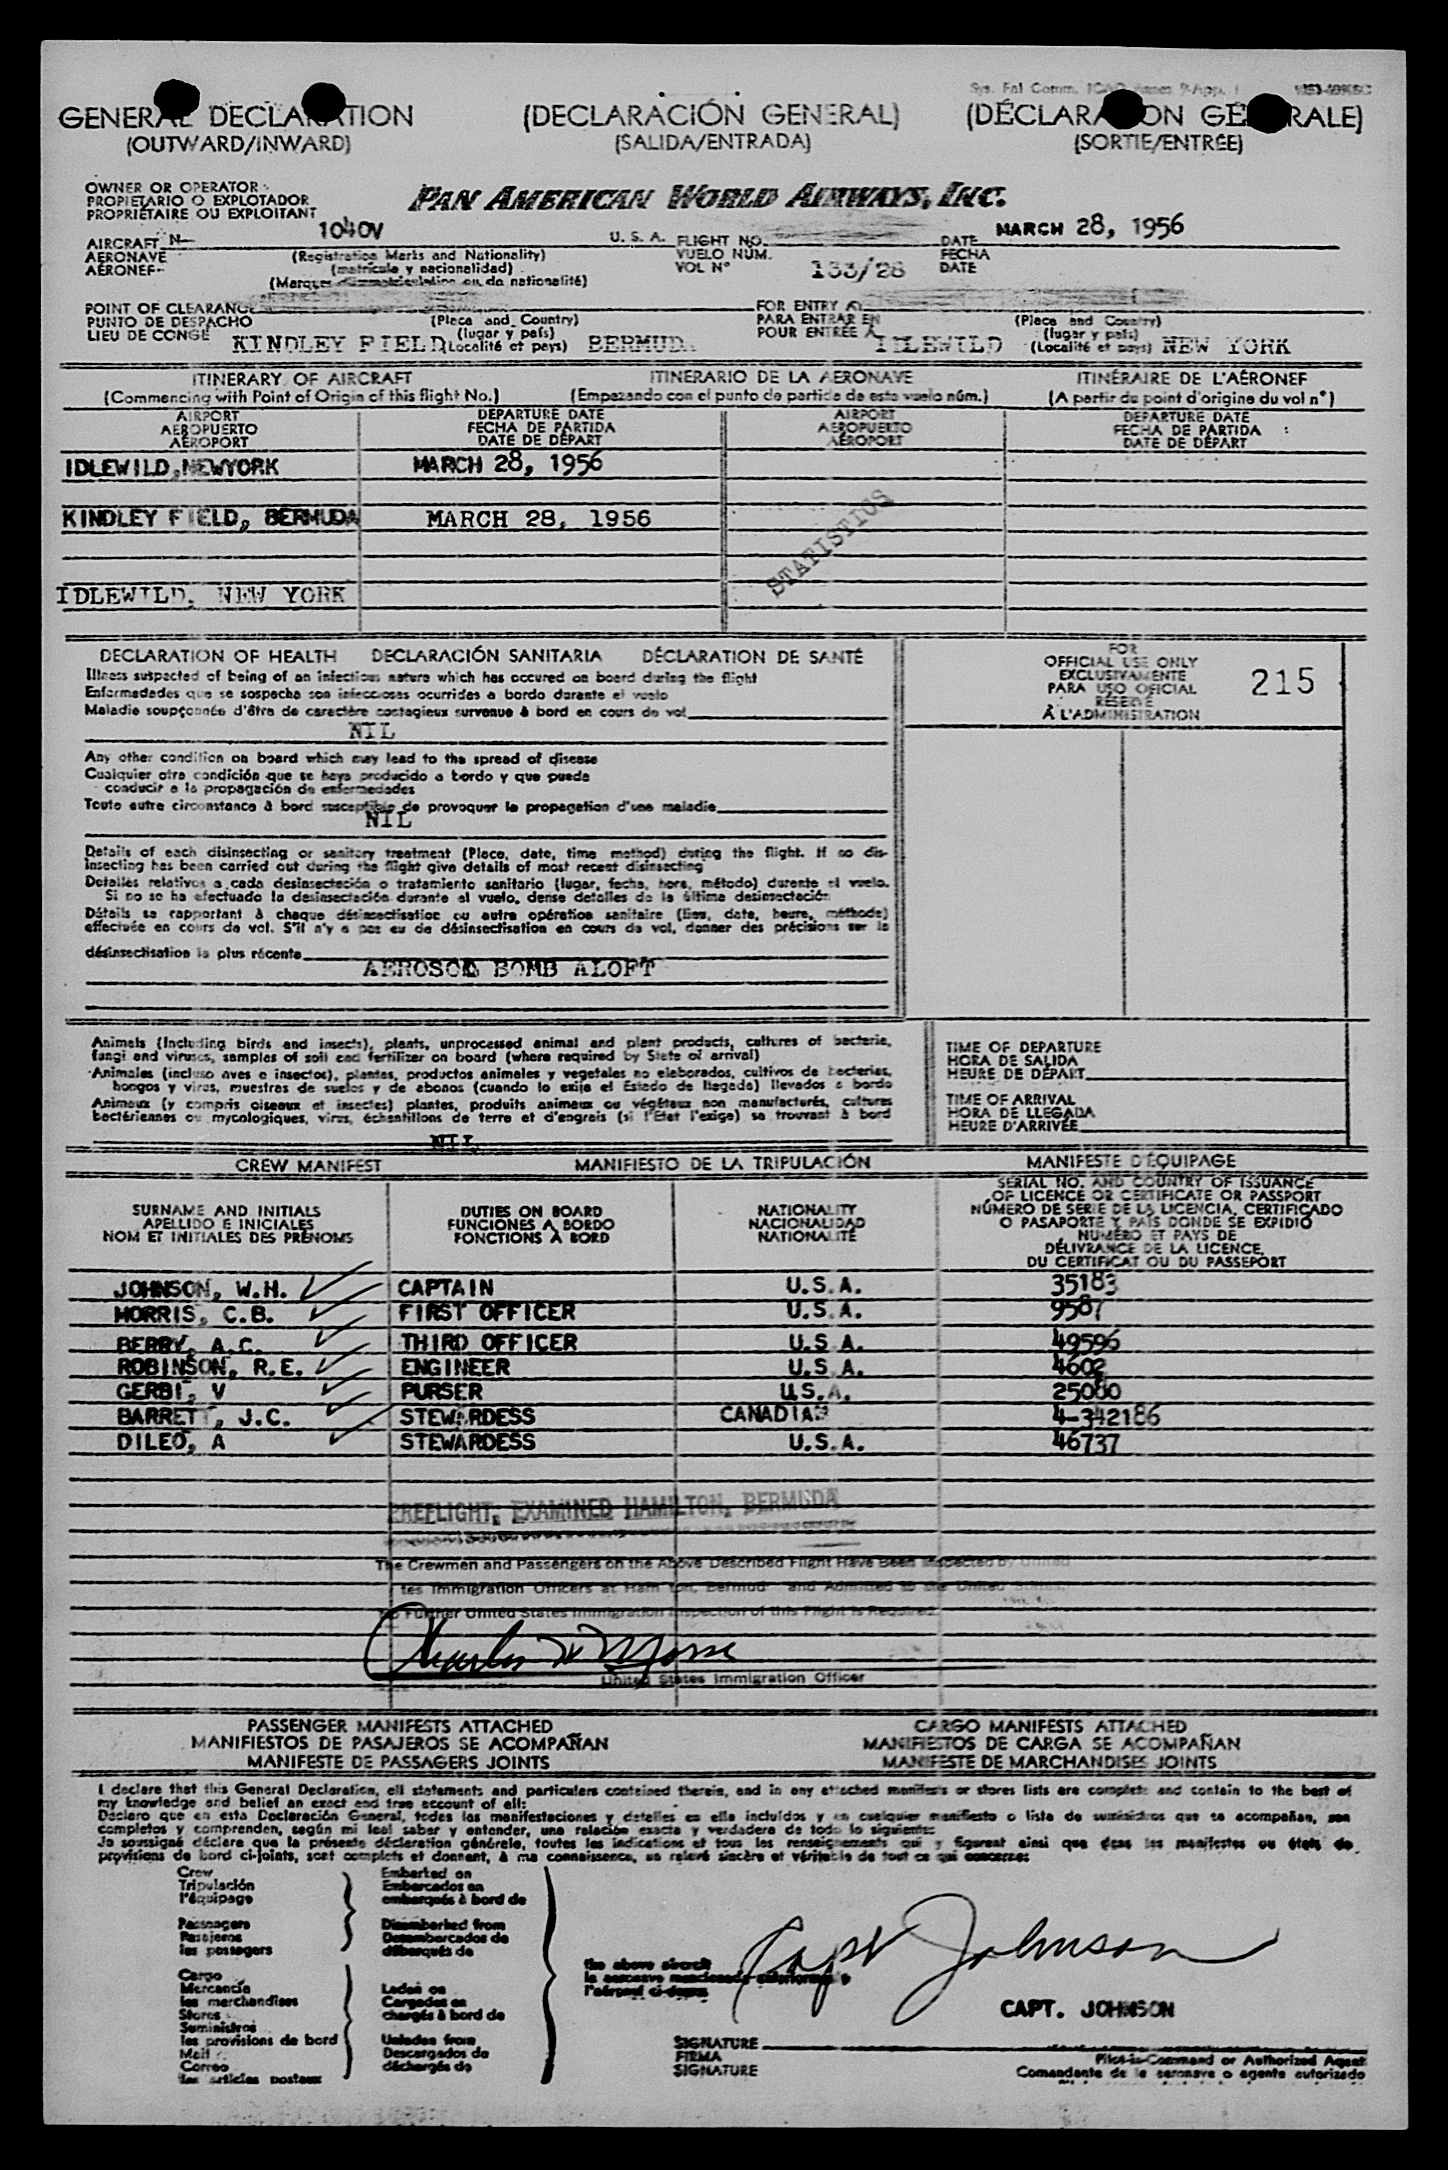 GENERAL DECLARATION
(OUTWARD/INWARD)
(DECLARACIÓN GENERAL)
(SALIDA/ENTRADA)
(DÉCLARATION GÉNÉRALE)
(SORTIE/ENTRÉE)
OWNER OR OPERATOR
PROPIETARIO O EXPLOTADOR
PROPRIÉTAIRE OU EXPLOITANT
PAN AMERICAN WORLD AIRWAYS, INC.
AIRCRAFT N- 1040V U. S. A. FLIGHT NO. DATE MARCH 28, 1956
AERONAVE (Registration Marks and Nationality) VUELO NÚM. FECHA
AÉRONEF (matrícula y nacionalidad) VOL Nº 133/28 DATE
POINT OF CLEARANCE FOR ENTRY AT
PUNTO DE DESPACHO (Place and Country) PARA ENTRAR EN (Place and Country)
LIEU DE CONGÉ (lugar y país) POUR ENTRÉE À (lugar y país)
KINDLEY FIELD, (Localité et pays) BERMUDA IDLEWILD (Localité et pays) NEW YORK
ITINERARY OF AIRCRAFT ITINERARIO DE LA AERONAVE ITINÉRAIRE DE L'AÉRONEF
(Commencing with Point of Origin of this flight No.) (Empezando con el punto de partida de este vuelo núm.) (A partir du point d'origine du vol nº)
AIRPORT DEPARTURE DATE AIRPORT DEPARTURE DATE
AEROPUERTO FECHA DE PARTIDA AEROPUERTO FECHA DE PARTIDA
AÉROPORT DATE DE DÉPART AÉROPORT DATE DE DÉPART
IDLEWILD, NEWYORK MARCH 28, 1956
KINDLEY FIELD, BERMUDA MARCH 28, 1956
STATISTICS
IDLEWILD, NEW YORK
DECLARATION OF HEALTH DECLARACIÓN SANITARIA DÉCLARATION DE SANTÉ
Illness suspected of being of an infectious nature which has occured on board during the flight
Enfermedades que se sospecha son infecciosas ocurridas a bordo durante el vuelo
Maladie soupçonnée d'être de caractère contagieux survenue à bord en cours de vol
NIL
Any other condition on board which may lead to the spread of disease
Cualquier otra condición que se haya producido a bordo y que puede
conducir a la propagación de enfermedades
Toute autre circonstance à bord susceptible de provoquer la propagation d'une maladie
NIL
Details of each disinsecting or sanitary treatment (Place, date, time method) during the flight. If no dis-
insecting has been carried out during the flight give details of most recent disinsecting
Detalles relativos a cada desinsectación o tratamiento sanitario (lugar, fecha, hora, método) durante el vuelo.
Si no se ha efectuado la desinsectación durante el vuelo, dense detalles de la última desinsectación
Détails se rapportant à chaque désinsectisation ou autre opération sanitaire (lieu, date, heure, méthode)
effectuée en cours de vol. S'il n'y a pas eu de désinsectisation en cours de vol, donner des précisions sur la
désinsectisation la plus récente
AEROSOL BOMB ALOFT
FOR
OFFICIAL USE ONLY
EXCLUSIVAMENTE
PARA USO OFICIAL
RÉSERVÉ
À L'ADMINISTRATION
215
Animals (Including birds and insects), plants, unprocessed animal and plant products, cultures of bacteria,
fungi and viruses, samples of soil and fertilizer on board (where required by State of arrival)
Animales (incluso aves e insectos), plantas, productos animales y vegetales no elaborados, cultivos de bacterias,
hongos y virus, muestras de suelos y de abonos (cuando lo exija el Estado de llegada) llevados a bordo
Animaux (y compris oiseaux et insectes) plantes, produits animaux ou végétaux non manufacturés, cultures
bactériennes ou mycologiques, virus, échantillons de terre et d'engrais (si l'État l'exige) se trouvant à bord
NIL
TIME OF DEPARTURE
HORA DE SALIDA
HEURE DE DÉPART
TIME OF ARRIVAL
HORA DE LLEGADA
HEURE D'ARRIVÉE
CREW MANIFEST MANIFIESTO DE LA TRIPULACIÓN MANIFESTE D'ÉQUIPAGE
SURNAME AND INITIALS
APELLIDO E INICIALES
NOM ET INITIALES DES PRÉNOMS
DUTIES ON BOARD
FUNCIONES A BORDO
FONCTIONS À BORD
NATIONALITY
NACIONALIDAD
NATIONALITÉ
SERIAL NO. AND COUNTRY OF ISSUANCE
OF LICENCE OR CERTIFICATE OR PASSPORT
NÚMERO DE SERIE DE LA LICENCIA, CERTIFICADO
O PASAPORTE Y PAÍS DONDE SE EXPIDIÓ
NUMÉRO ET PAYS DE
DÉLIVRANCE DE LA LICENCE,
DU CERTIFICAT OU DU PASSEPORT
JOHNSON, W.H. CAPTAIN U.S.A. 35183
MORRIS, C.B. FIRST OFFICER U.S.A. 9587
BERRY, A.C. THIRD OFFICER U.S.A. 49596
ROBINSON, R.E. ENGINEER U.S.A. 4602
GERBI, V PURSER U.S.A. 25080
BARRETT, J.C. STEWARDESS CANADIAN 4-342186
DILEO, A STEWARDESS U.S.A. 46737
PREFLIGHT, EXAMINED HAMILTON, BERMUDA
The Crewmen and Passengers on the Above Described Flight Have Been Inspected by United
tes Immigration Officers at Hamilton, Bermuda and Admitted to the United States.
No Further United States Immigration Inspection of this Flight is Required.
Charles W Morse
United States Immigration Officer
PASSENGER MANIFESTS ATTACHED CARGO MANIFESTS ATTACHED
MANIFIESTOS DE PASAJEROS SE ACOMPAÑAN MANIFIESTOS DE CARGA SE ACOMPAÑAN
MANIFESTE DE PASSAGERS JOINTS MANIFESTE DE MARCHANDISES JOINTS
I declare that this General Declaration, all statements and particulars contained therein, and in any attached manifests or stores lists are complete and contain to the best of
my knowledge and belief an exact and true account of all:
Declaro que en esta Declaración General, todas las manifestaciones y detalles en ella incluídos y en cualquier manifiesto o lista de suministros que se acompañan, son
completos y comprenden, según mi leal saber y entender, una relación exacta y verdadera de todo lo siguiente:
Je soussigné déclare que la présente déclaration générale, toutes les indications et tous les renseignements qui y figurent ainsi que dans les manifestes ou états de
provisions de bord ci-joints, sont complets et donnent, à ma connaissance, un relevé sincère et véritable de tout ce qui concerne:
Crew Embarked on
Tripulación Embarcados en
l'équipage embarqués à bord de
Passengers Disembarked from
Pasajeros Desembarcados de
les passagers débarqués de
the above aircraft
l'aéronef ci-dessus
Cargo
Mercancía Laden on
les marchandises Cargados en
Stores chargés à bord de
Suministros
les provisions de bord Unladen from
Mail Descargados de
Correo déchargés de
les articles postaux
Capt Johnson
CAPT. JOHNSON
SIGNATURE
FIRMA
SIGNATURE
Pilot-in-Command or Authorized Agent
Comandante de la aeronave o agente autorizado